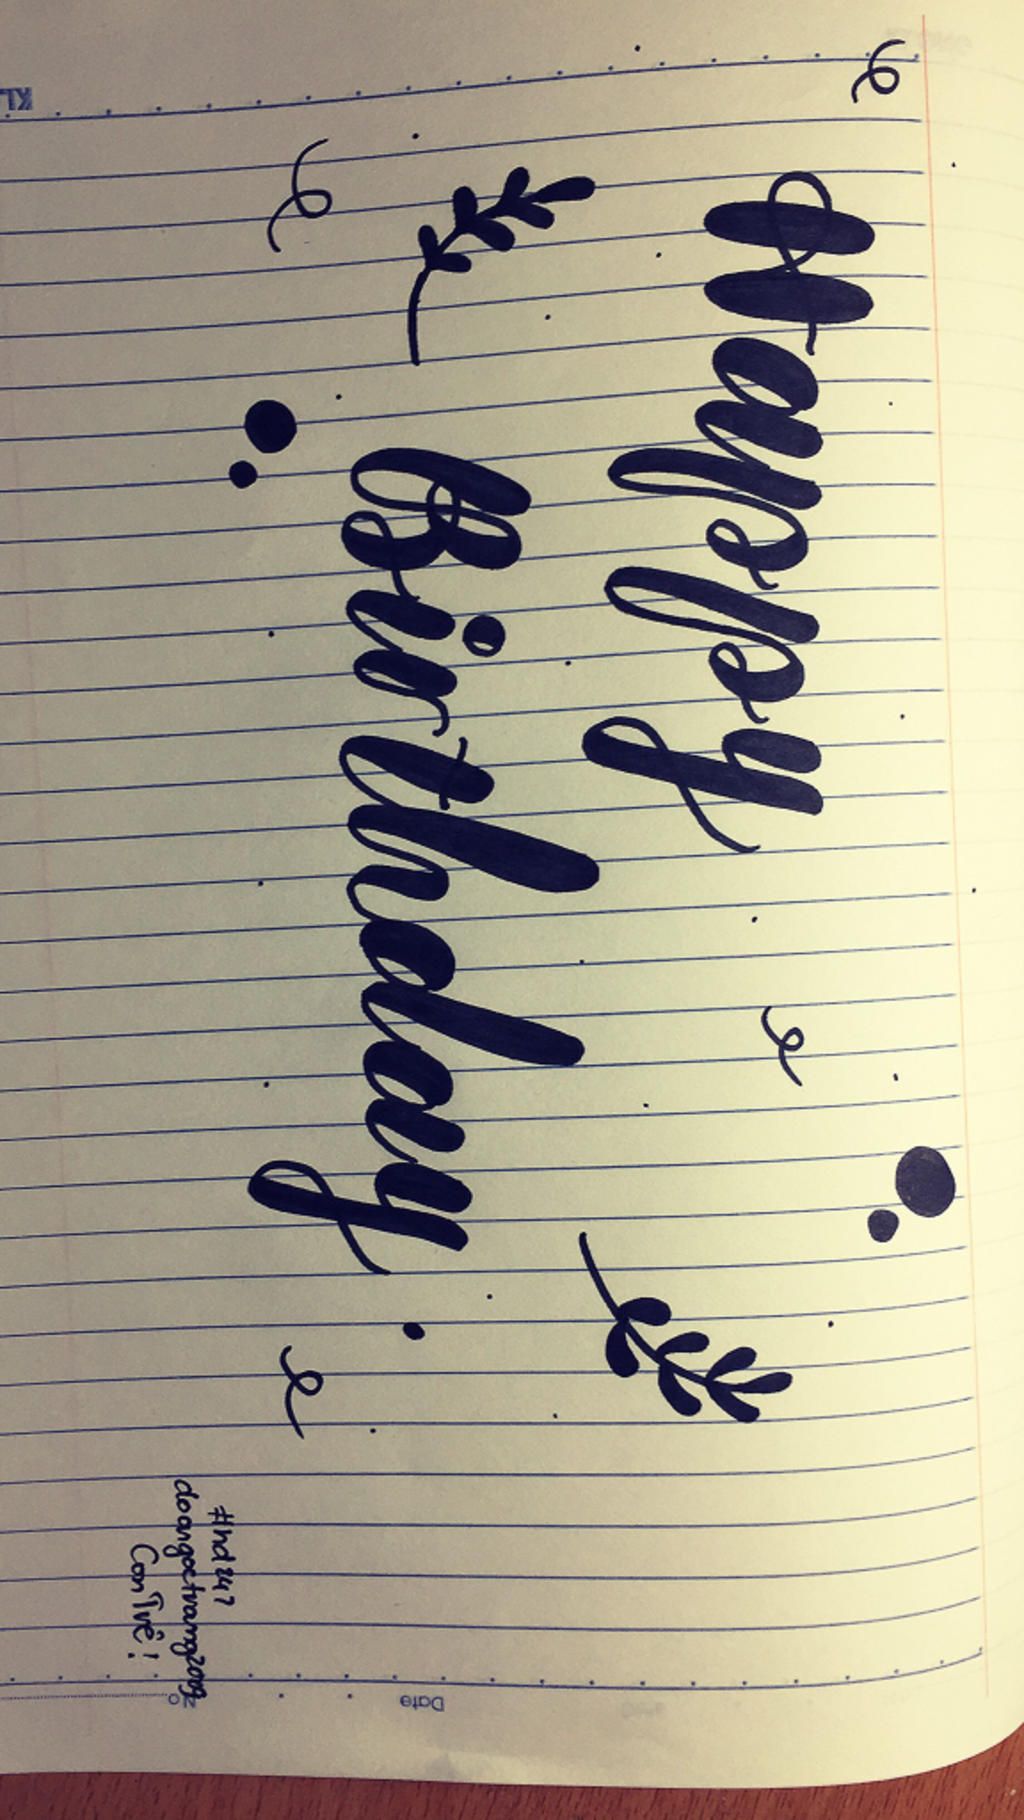 Happy
Birthday
#hd247
doangoctrang2009
Con Trê!
Date
No
KL